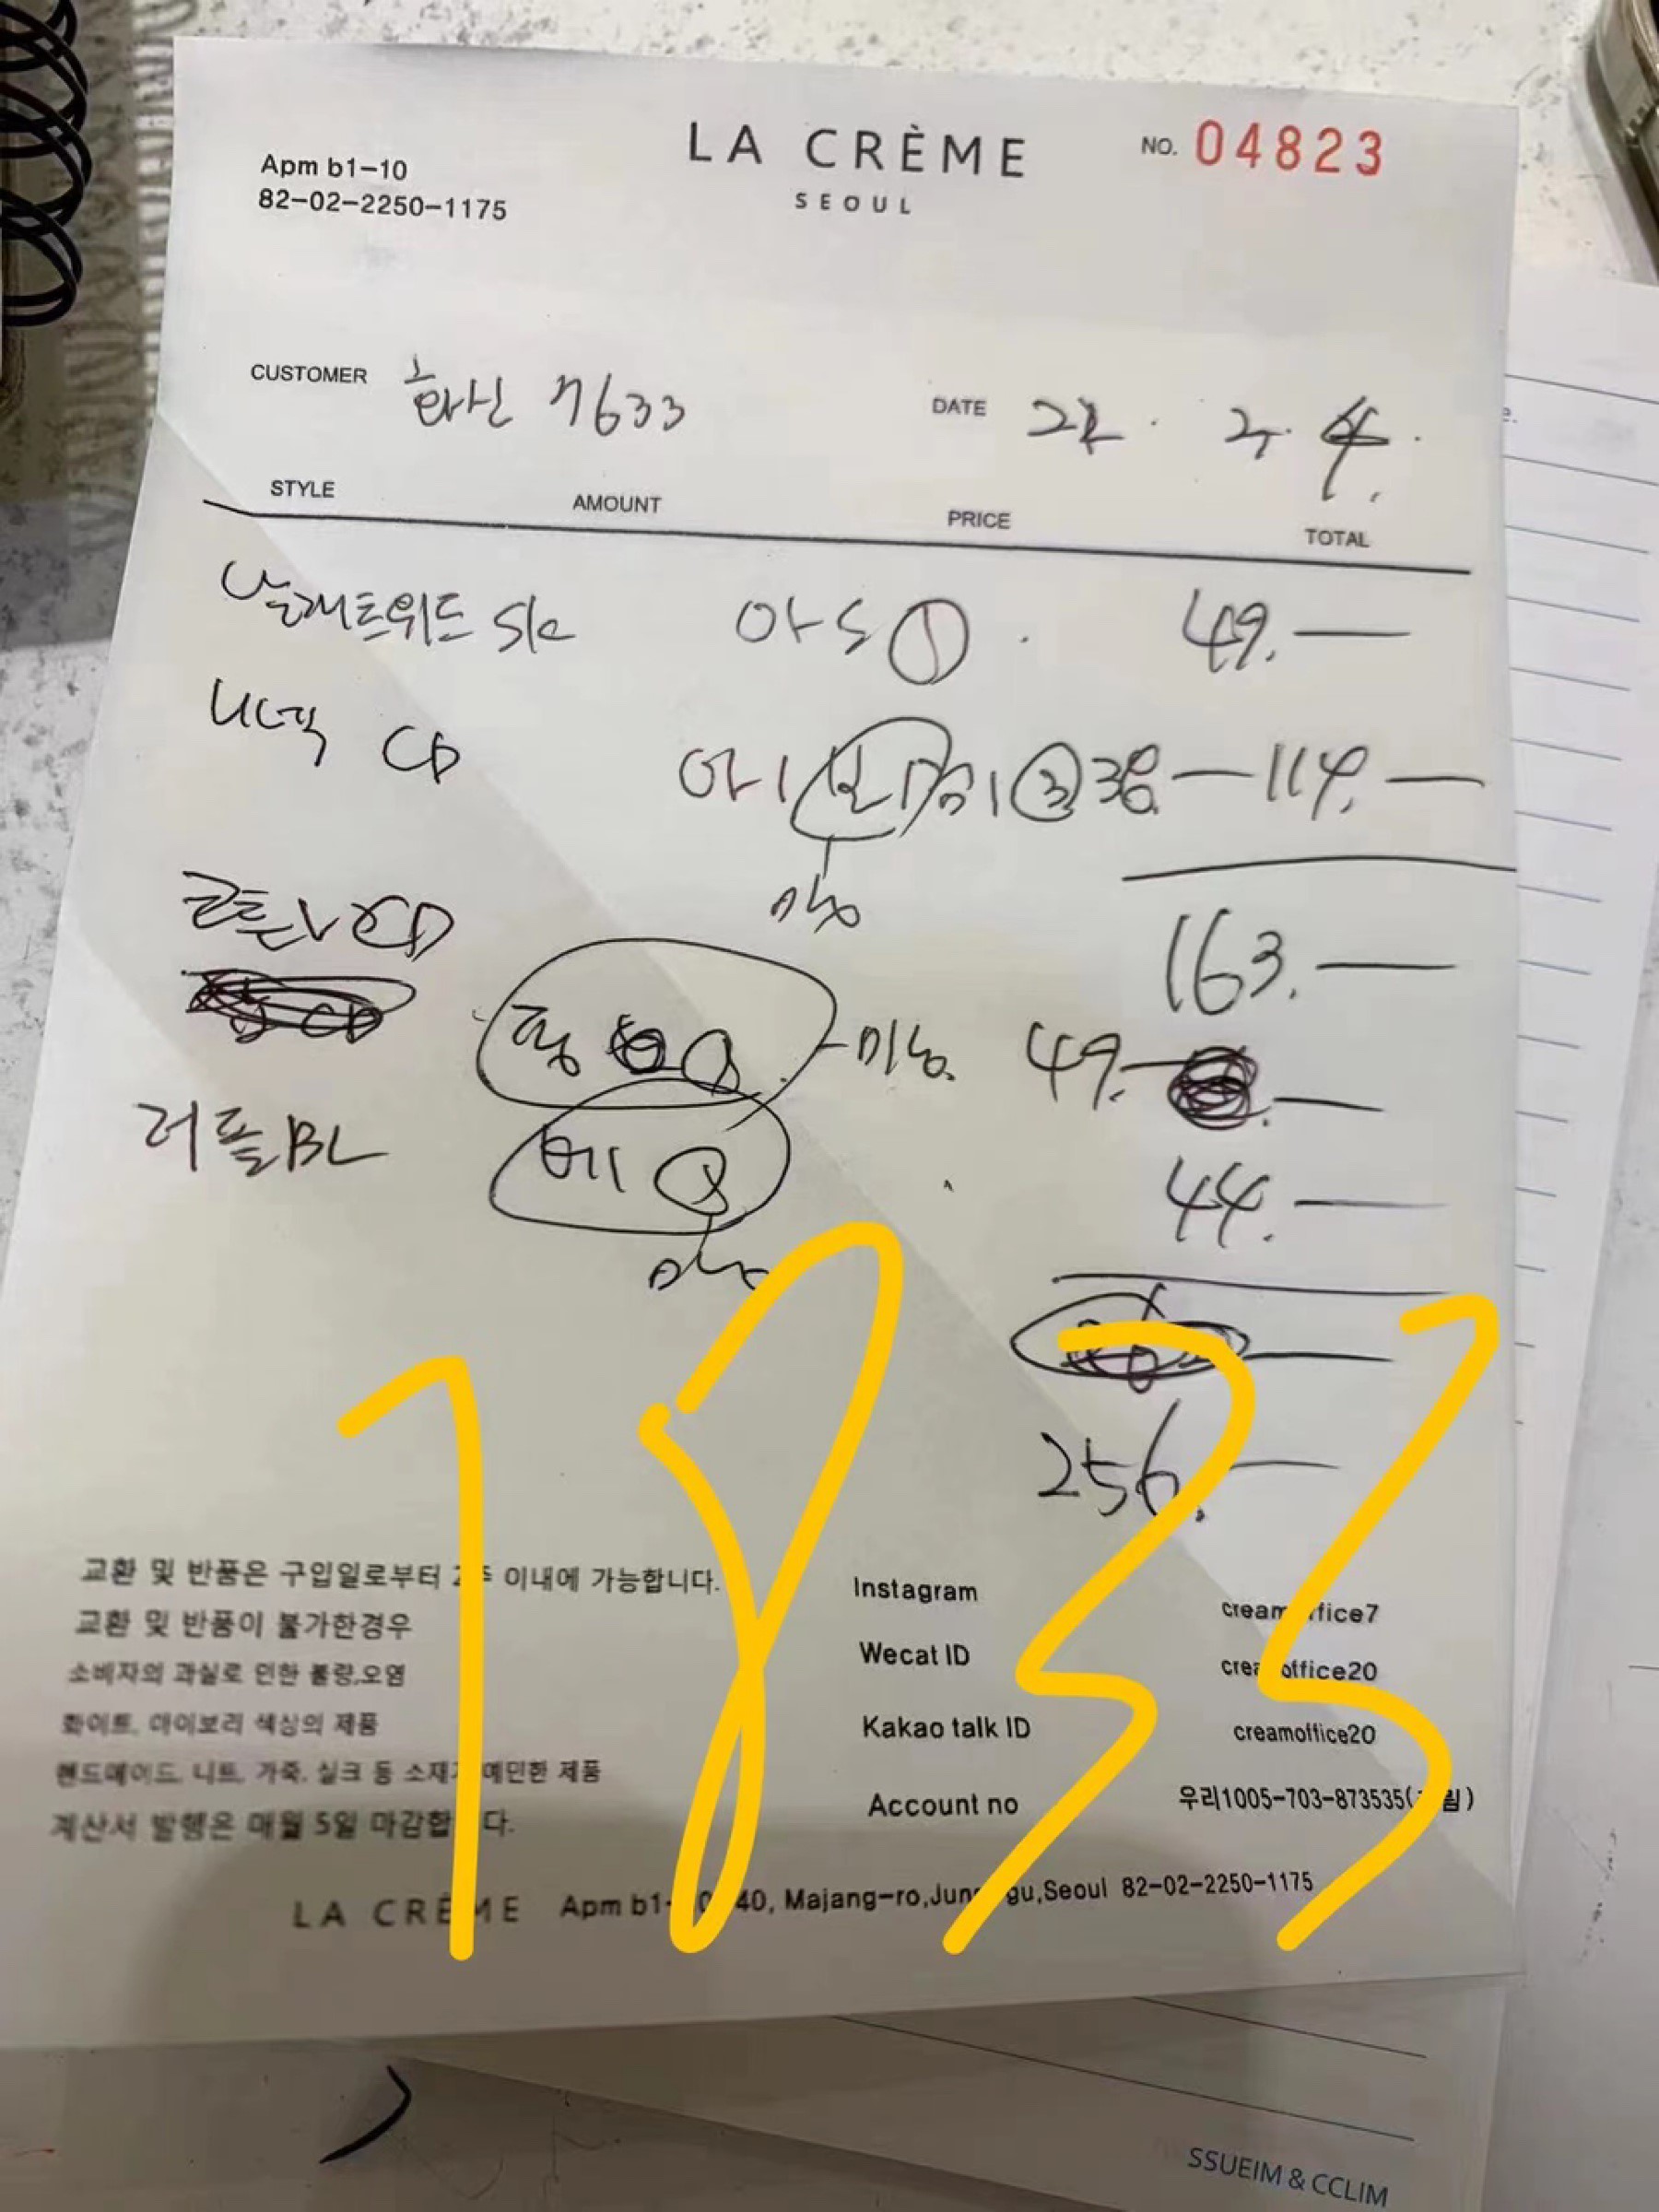 LA CRÈME
SEOUL
NO. 04823
Apm b1-10
82-02-2250-1175
CUSTOMER 화신 7633
DATE 22. 2. 4.
STYLE AMOUNT PRICE TOTAL
날개트위드 SK 아 S ① 49.—
U넥 CD 아1 ③ 38.— 114.—
미송
163.—
코튼 V CD
핑 ① 미송. 49.—
러플BL 베 ① 44.—
미송
256.—
1833
교환 및 반품은 구입일로부터 2주 이내에 가능합니다.
교환 및 반품이 불가한경우
소비자의 과실로 인한 불량,오염
화이트, 아이보리 색상의 제품
핸드메이드, 니트, 가죽, 실크 등 소재가 예민한 제품
계산서 발행은 매월 5일 마감합니다.
Instagram creamoffice7
Wecat ID creamoffice20
Kakao talk ID creamoffice20
Account no 우리1005-703-873535
LA CRÈME Apm b1-10 40, Majang-ro,Jung-gu,Seoul 82-02-2250-1175
SSUEIM & CCLIM